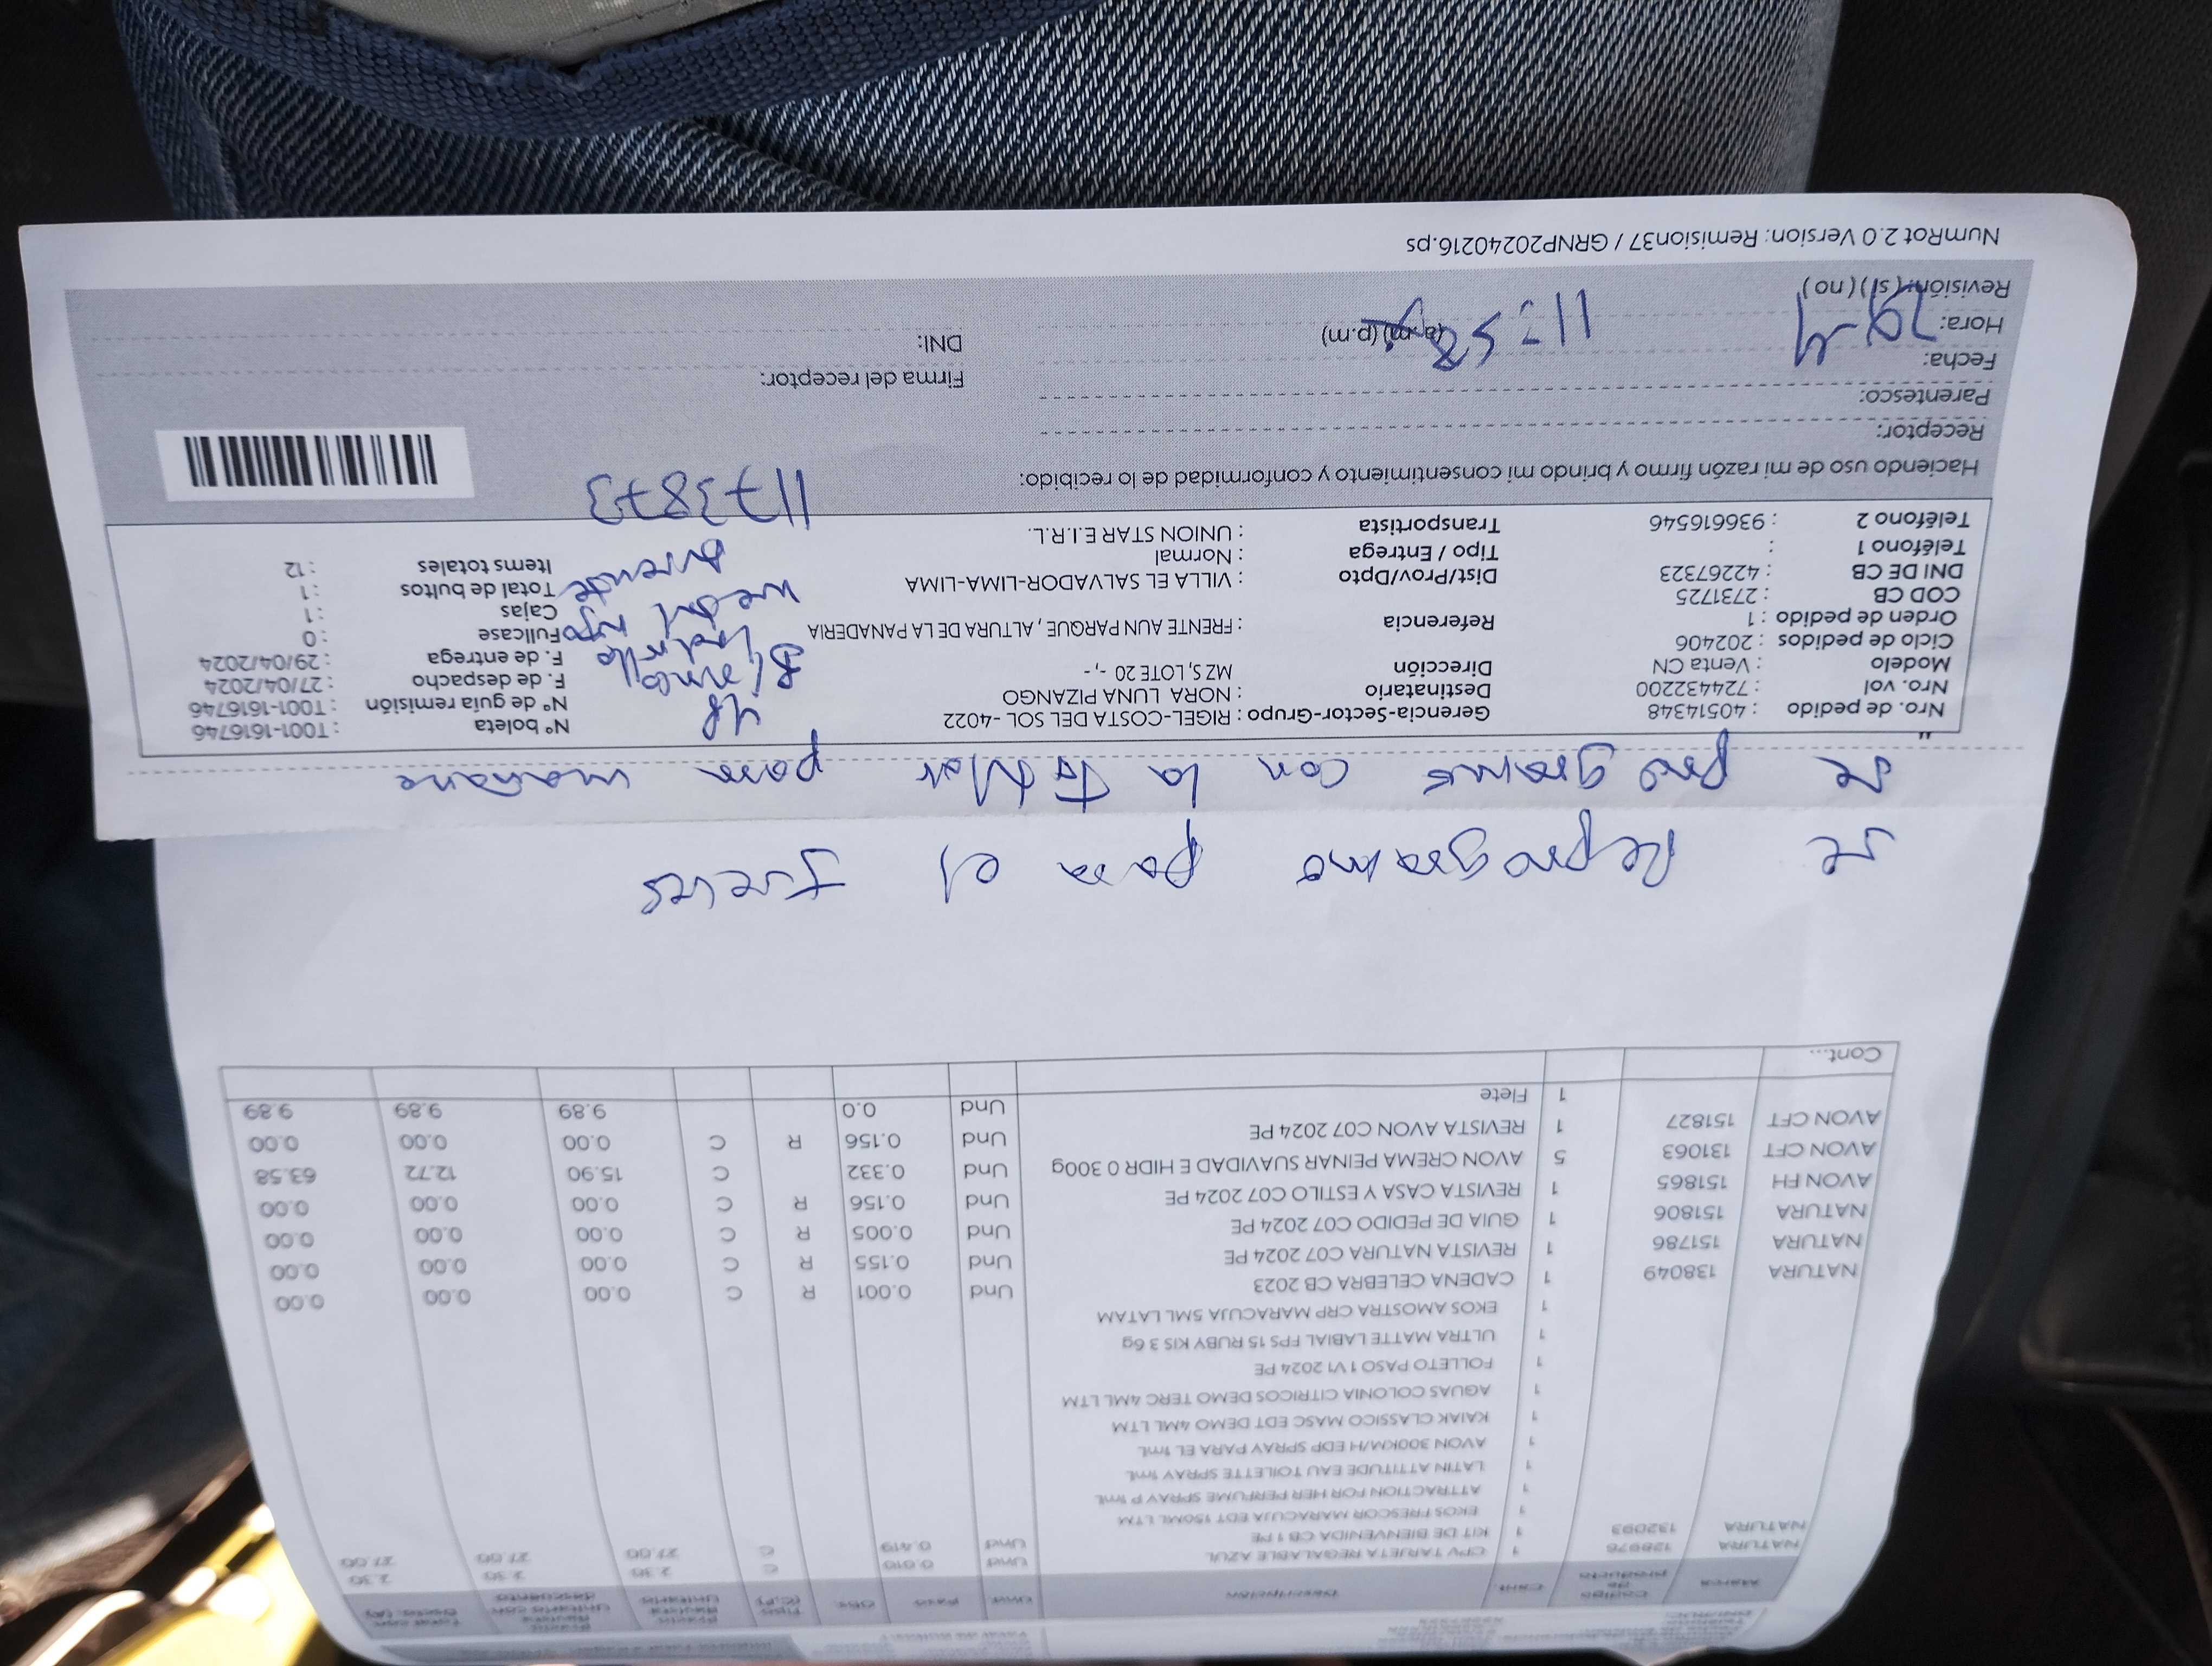 Marca Código de producto Cant. Descripción Unid. Peso OBS. Tipo
NATURA 128976 1 CPV TARJETA REGALABLE AZUL Und 0.010 C 2.30 2.30 2.30
NATURA 132093 1 KIT DE BIENVENIDA CB 1 PE Und 0.419 C 27.00 27.00 27.00
1 EKOS FRESCOR MARACUJA EDT 150ML LTM
1 ATTRACTION FOR HER PERFUME SPRAY P 1mL
1 LATIN ATTITUDE EAU TOILETTE SPRAY 1mL
1 AVON 300KM/H EDP SPRAY PARA EL 1mL
1 KAIAK CLASSICO MASC EDT DEMO 4ML LTM
1 AGUAS COLONIA CITRICOS DEMO TERC 4ML LTM
1 FOLLETO PASO 1 V1 2024 PE
1 ULTRA MATTE LABIAL FPS 15 RUBY KIS 3 6g
1 EKOS AMOSTRA CRP MARACUJA 5ML LATAM
NATURA 138049 1 CADENA CELEBRA CB 2023 Und 0.001 R C 0.00 0.00 0.00
NATURA 151786 1 REVISTA NATURA C07 2024 PE Und 0.155 R C 0.00 0.00 0.00
NATURA 151806 1 GUIA DE PEDIDO C07 2024 PE Und 0.005 R C 0.00 0.00 0.00
AVON FH 151865 1 REVISTA CASA Y ESTILO C07 2024 PE Und 0.156 R C 0.00 0.00 0.00
AVON CFT 131063 5 AVON CREMA PEINAR SUAVIDAD E HIDR 0 300g Und 0.332 C 15.90 12.72 63.58
AVON CFT 151827 1 REVISTA AVON C07 2024 PE Und 0.156 R C 0.00 0.00 0.00
1 Flete Und 0.0 9.89 9.89 9.89
Cont...
se Reprogramo para el Jueves
se programó con la titular para mañana
Nro. de pedido : 40514348 Gerencia-Sector-Grupo : RIGEL-COSTA DEL SOL -4022 N° boleta : T001-1616746
Nro. vol : 724432200 Destinatario : NORA LUNA PIZANGO N° de guía remisión : T001-1616746
Modelo : Venta CN Dirección MZ S, LOTE 20 -,- F. de despacho : 27/04/2024
Ciclo de pedidos : 202406 F. de entrega : 29/04/2024
Orden de pedido : 1 Referencia : FRENTE AUN PARQUE , ALTURA DE LA PANADERIA Fullcase : 0
COD CB : 2731725 Cajas : 1
DNI DE CB : 42267323 Dist/Prov/Dpto : VILLA EL SALVADOR-LIMA-LIMA Total de bultos : 1
Teléfono 1 : Tipo / Entrega : Normal Items totales : 12
Teléfono 2 : 936616546 Transportista : UNION STAR E.I.R.L.
4P
Blanco
ladrillo
1173873
Haciendo uso de mi razón firmo y brindo mi consentimiento y conformidad de lo recibido:
Receptor:
Parentesco:
Fecha: Firma del receptor:
Hora: 11:58 (a.m) (p.m) DNI:
Revisión: (si) (no)
NumRot 2.0 Version: Remision37 / GRNP20240216.ps